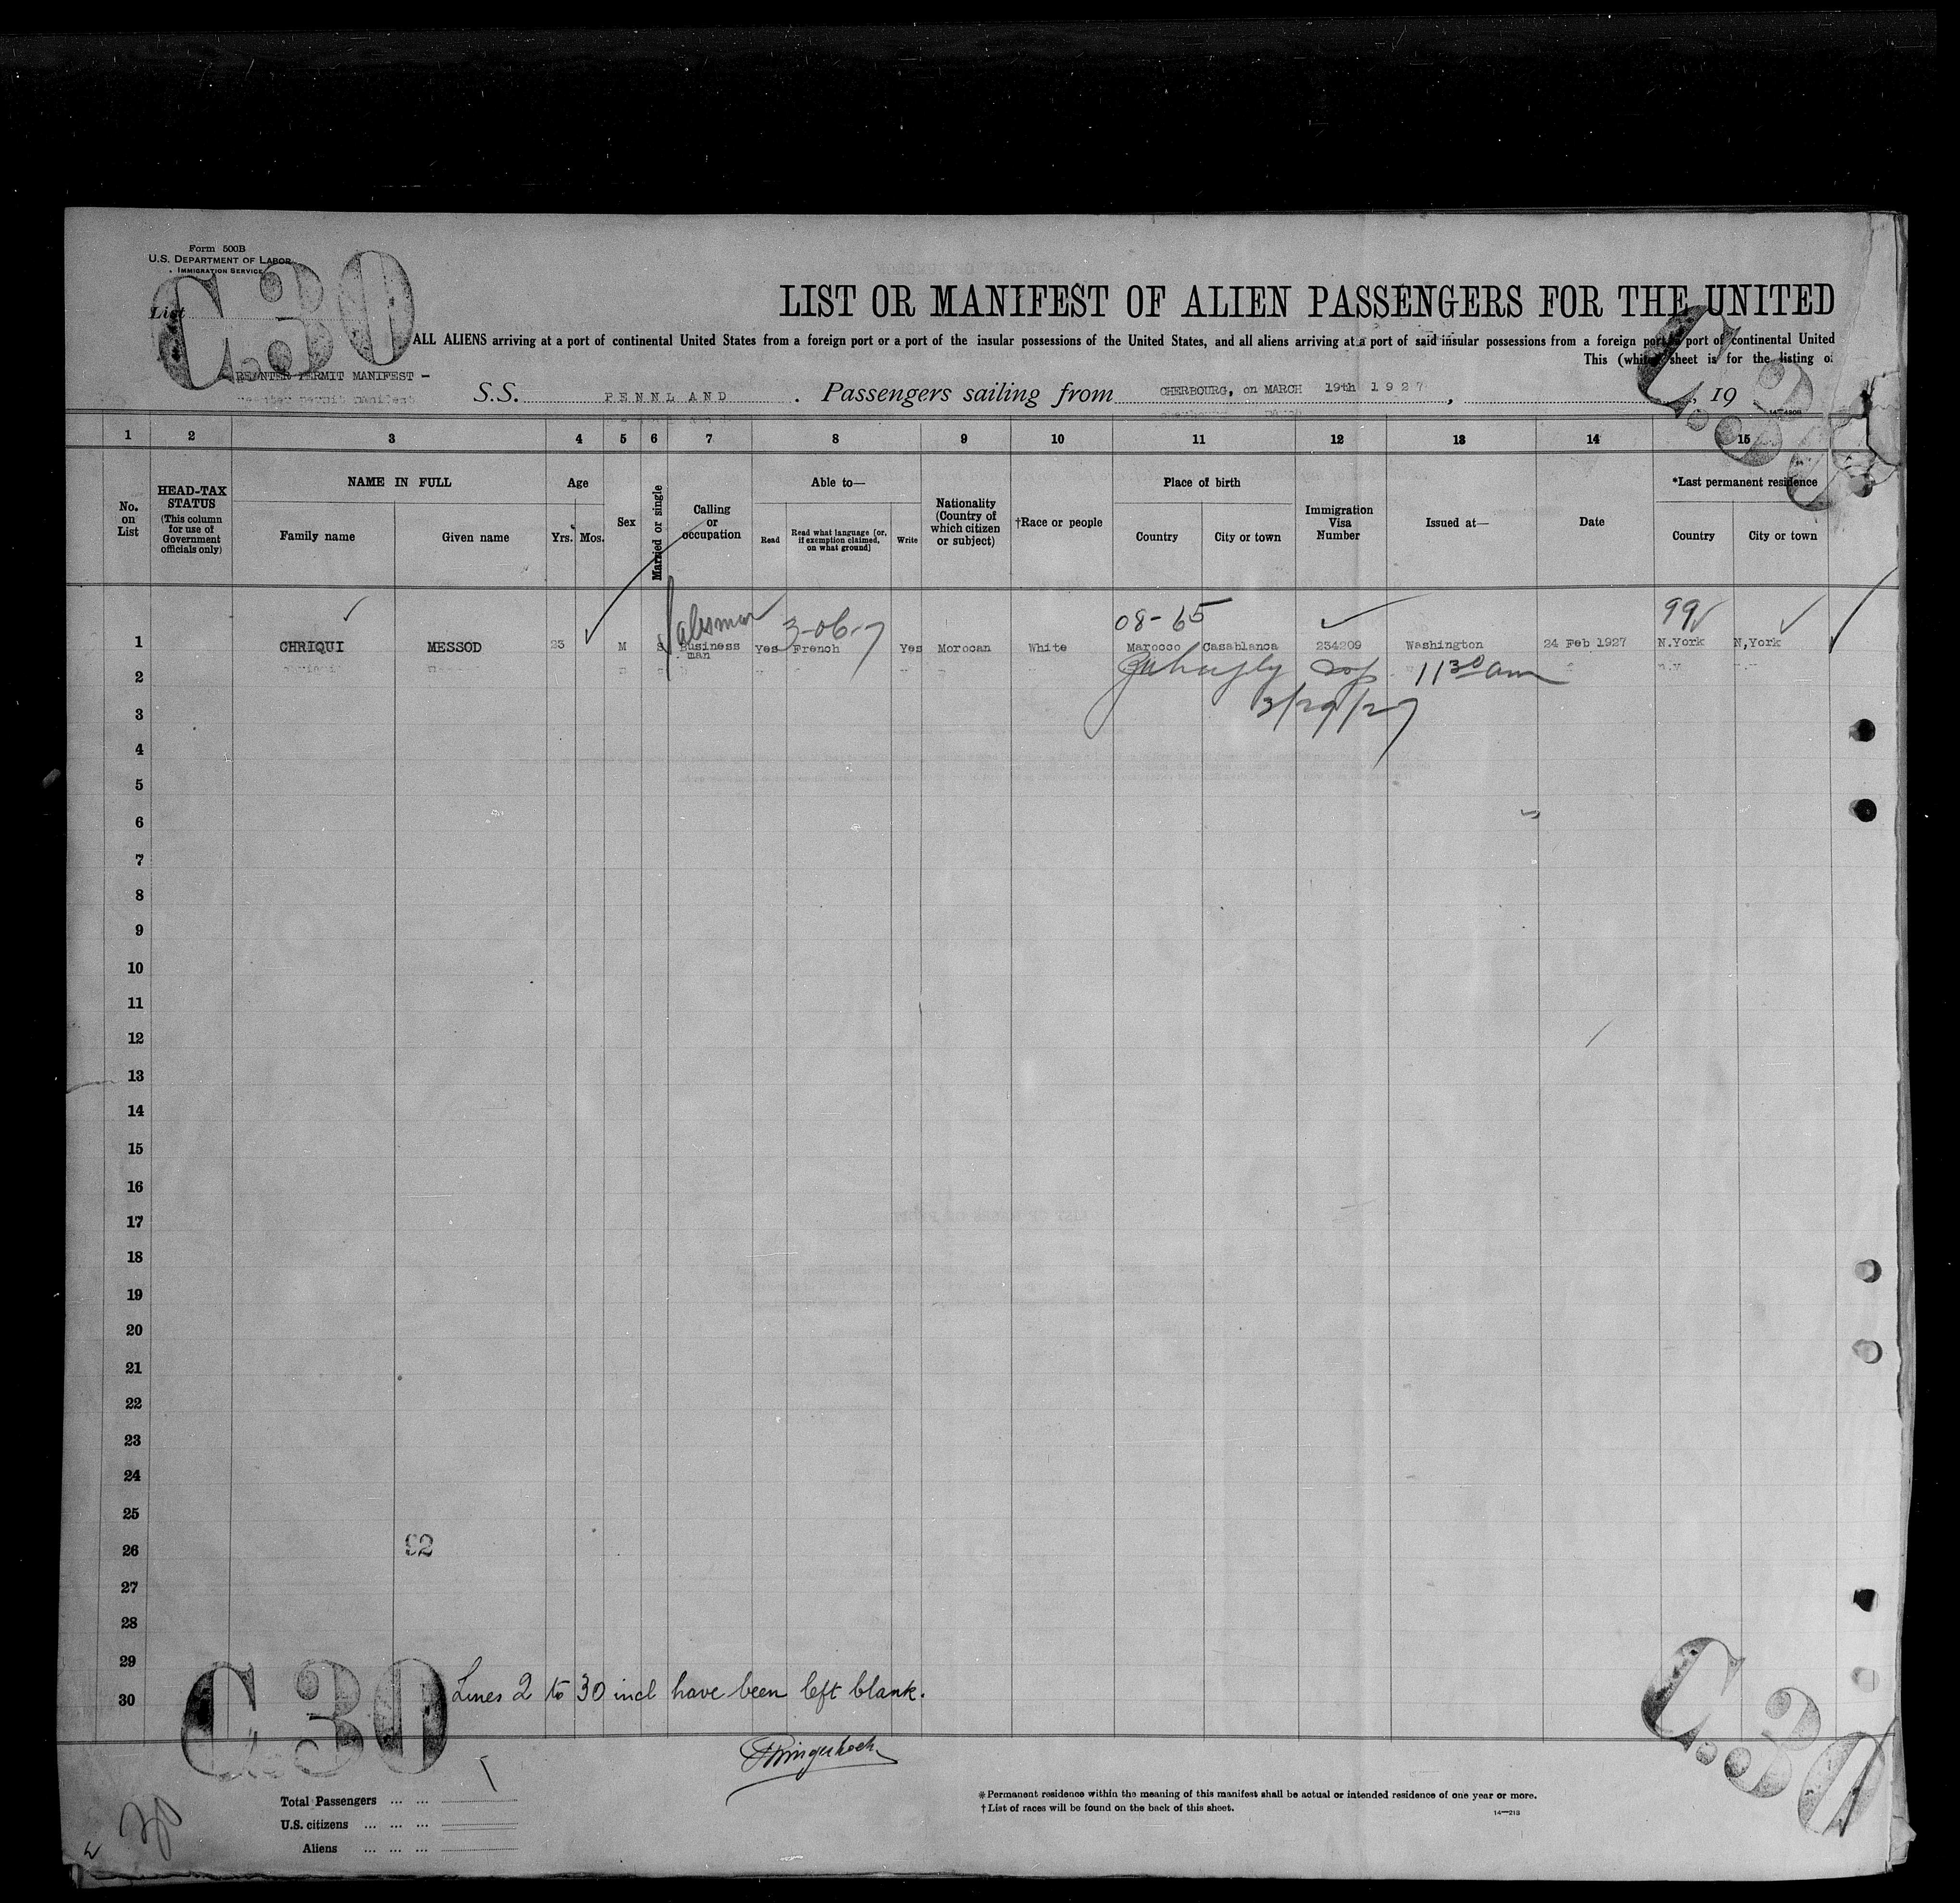 Form 500B
U.S. DEPARTMENT OF LABOR
IMMIGRATION SERVICE
C.30
C.30
List
LIST OR MANIFEST OF ALIEN PASSENGERS FOR THE UNITED
ALL ALIENS arriving at a port of continental United States from a foreign port or a port of the insular possessions of the United States, and all aliens arriving at a port of said insular possessions from a foreign port port of continental United
This (white) sheet is for the listing of
REENTER PERMIT MANIFEST -
S.S. PENNLAND. Passengers sailing from CHERBOURG, on MARCH 19th 1927, , 19
1 2 3 4 5 6 7 8 9 10 11 12 13 14 15
No. on List
HEAD-TAX STATUS (This column for use of Government officials only)
NAME IN FULL
Family name
Given name
Age
Yrs. Mos.
Sex
Married or single
Calling or occupation
Able to—
Read
Read what language [or, if exemption claimed, on what ground]
Write
Nationality (Country of which citizen or subject)
†Race or people
Place of birth
Country
City or town
Immigration Visa Number
Issued at—
Date
*Last permanent residence
Country
City or town
Salesman 3-06-7 08-65 99
1 CHRIQUI MESSOD 25 M S Business man Yes French Yes Morocan White Marocco Casablanca 234209 Washington 24 Feb 1927 N.York N,York
1130 am
3/29/27
2
3
4
5
6
7
8
9
10
11
12
13
14
15
16
17
18
19
20
21
22
23
24
25
92
26
27
28
29
30
Lines 2 to 30 incl have been left blank.
C.30
C.30
Total Passengers ... ...
U.S. citizens ... ... ...
Aliens ... ... ...
*Permanent residence within the meaning of this manifest shall be actual or intended residence of one year or more.
†List of races will be found on the back of this sheet.
14—213